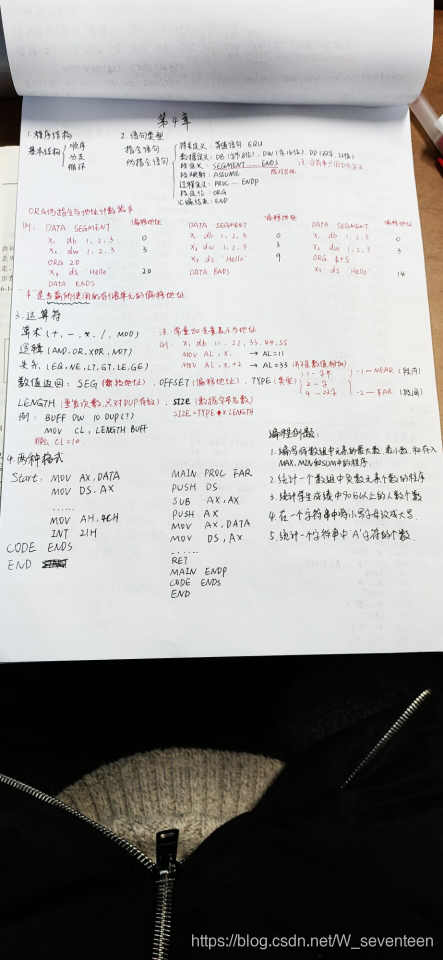 第4章
1.程序结构
基本结构 顺序
分支
循环
2.语句类型
指令语句
伪指令语句
符号定义：等值语句 EQU
数据定义：DB(字节8位)、DW(字16位)、DD(双字、32位)
段定义：SEGMENT……ENDS
段映射：ASSUME
过程定义：PROC…ENDP
段定位：ORG
汇编结束：END
注：字符串只用DB定义
ORG伪指令与地址计数器$
例：DATA SEGMENT 偏移地址
X1 db 1,2,3 0
X2 dw 1,2,3 3
ORG 20
X3 db 'Hello' 20
DATA ENDS
DATA SEGMENT 偏移地址
X1 db 1,2,3 0
X2 dw 1,2,3 3
X3 db 'Hello' 9
DATA ENDS
DATA SEGMENT 偏移地址
X1 db 1,2,3 0
X2 dw 1,2,3 3
ORG $+5
X3 db 'Hello' 14
$是当前所使用的存储单元的偏移地址
3.运算符
算术(+,-,*,/,MOD)
逻辑(AND,OR,XOR,NOT)
关系(EQ,NE,LT,GT,LE,GE)
注：常量加变量表示地址
例：X1 db 11,22,33,44,55
MOV AL,X1 → AL=11
MOV AL,X1+2 → AL=33
数值返回：SEG(段地址)、OFFSET(偏移地址)、TYPE(类型)
1—字节
2—字
4—双字
-1—NEAR(段内)
-2—FAR(段间)
LENGTH(重复次数,只对DUP有效)、size(数据字节总数)
SIZE=TYPE*LENGTH
例：BUFF DW 10 DUP(?)
MOV CL,LENGTH BUFF
CL=10
4.两种格式
Start: MOV AX,DATA
MOV DS,AX
……
MOV AH,4CH
INT 21H
CODE ENDS
END
MAIN PROC FAR
PUSH DS
SUB AX,AX
PUSH AX
MOV AX,DATA
MOV DS,AX
……
RET
MAIN ENDP
CODE ENDS
END
编程例题：
1.编写将数组中元素的最大数、最小数、和存入
MAX,MIN和SUM中的程序.
2.统计一个数组中负数元素个数的程序
3.统计学生成绩中90分以上的人数个数
4.在一个字符串中将小写字母改成大写.
5.统计一个字符串中'A'字符的个数
https://blog.csdn.net/W_seventeen